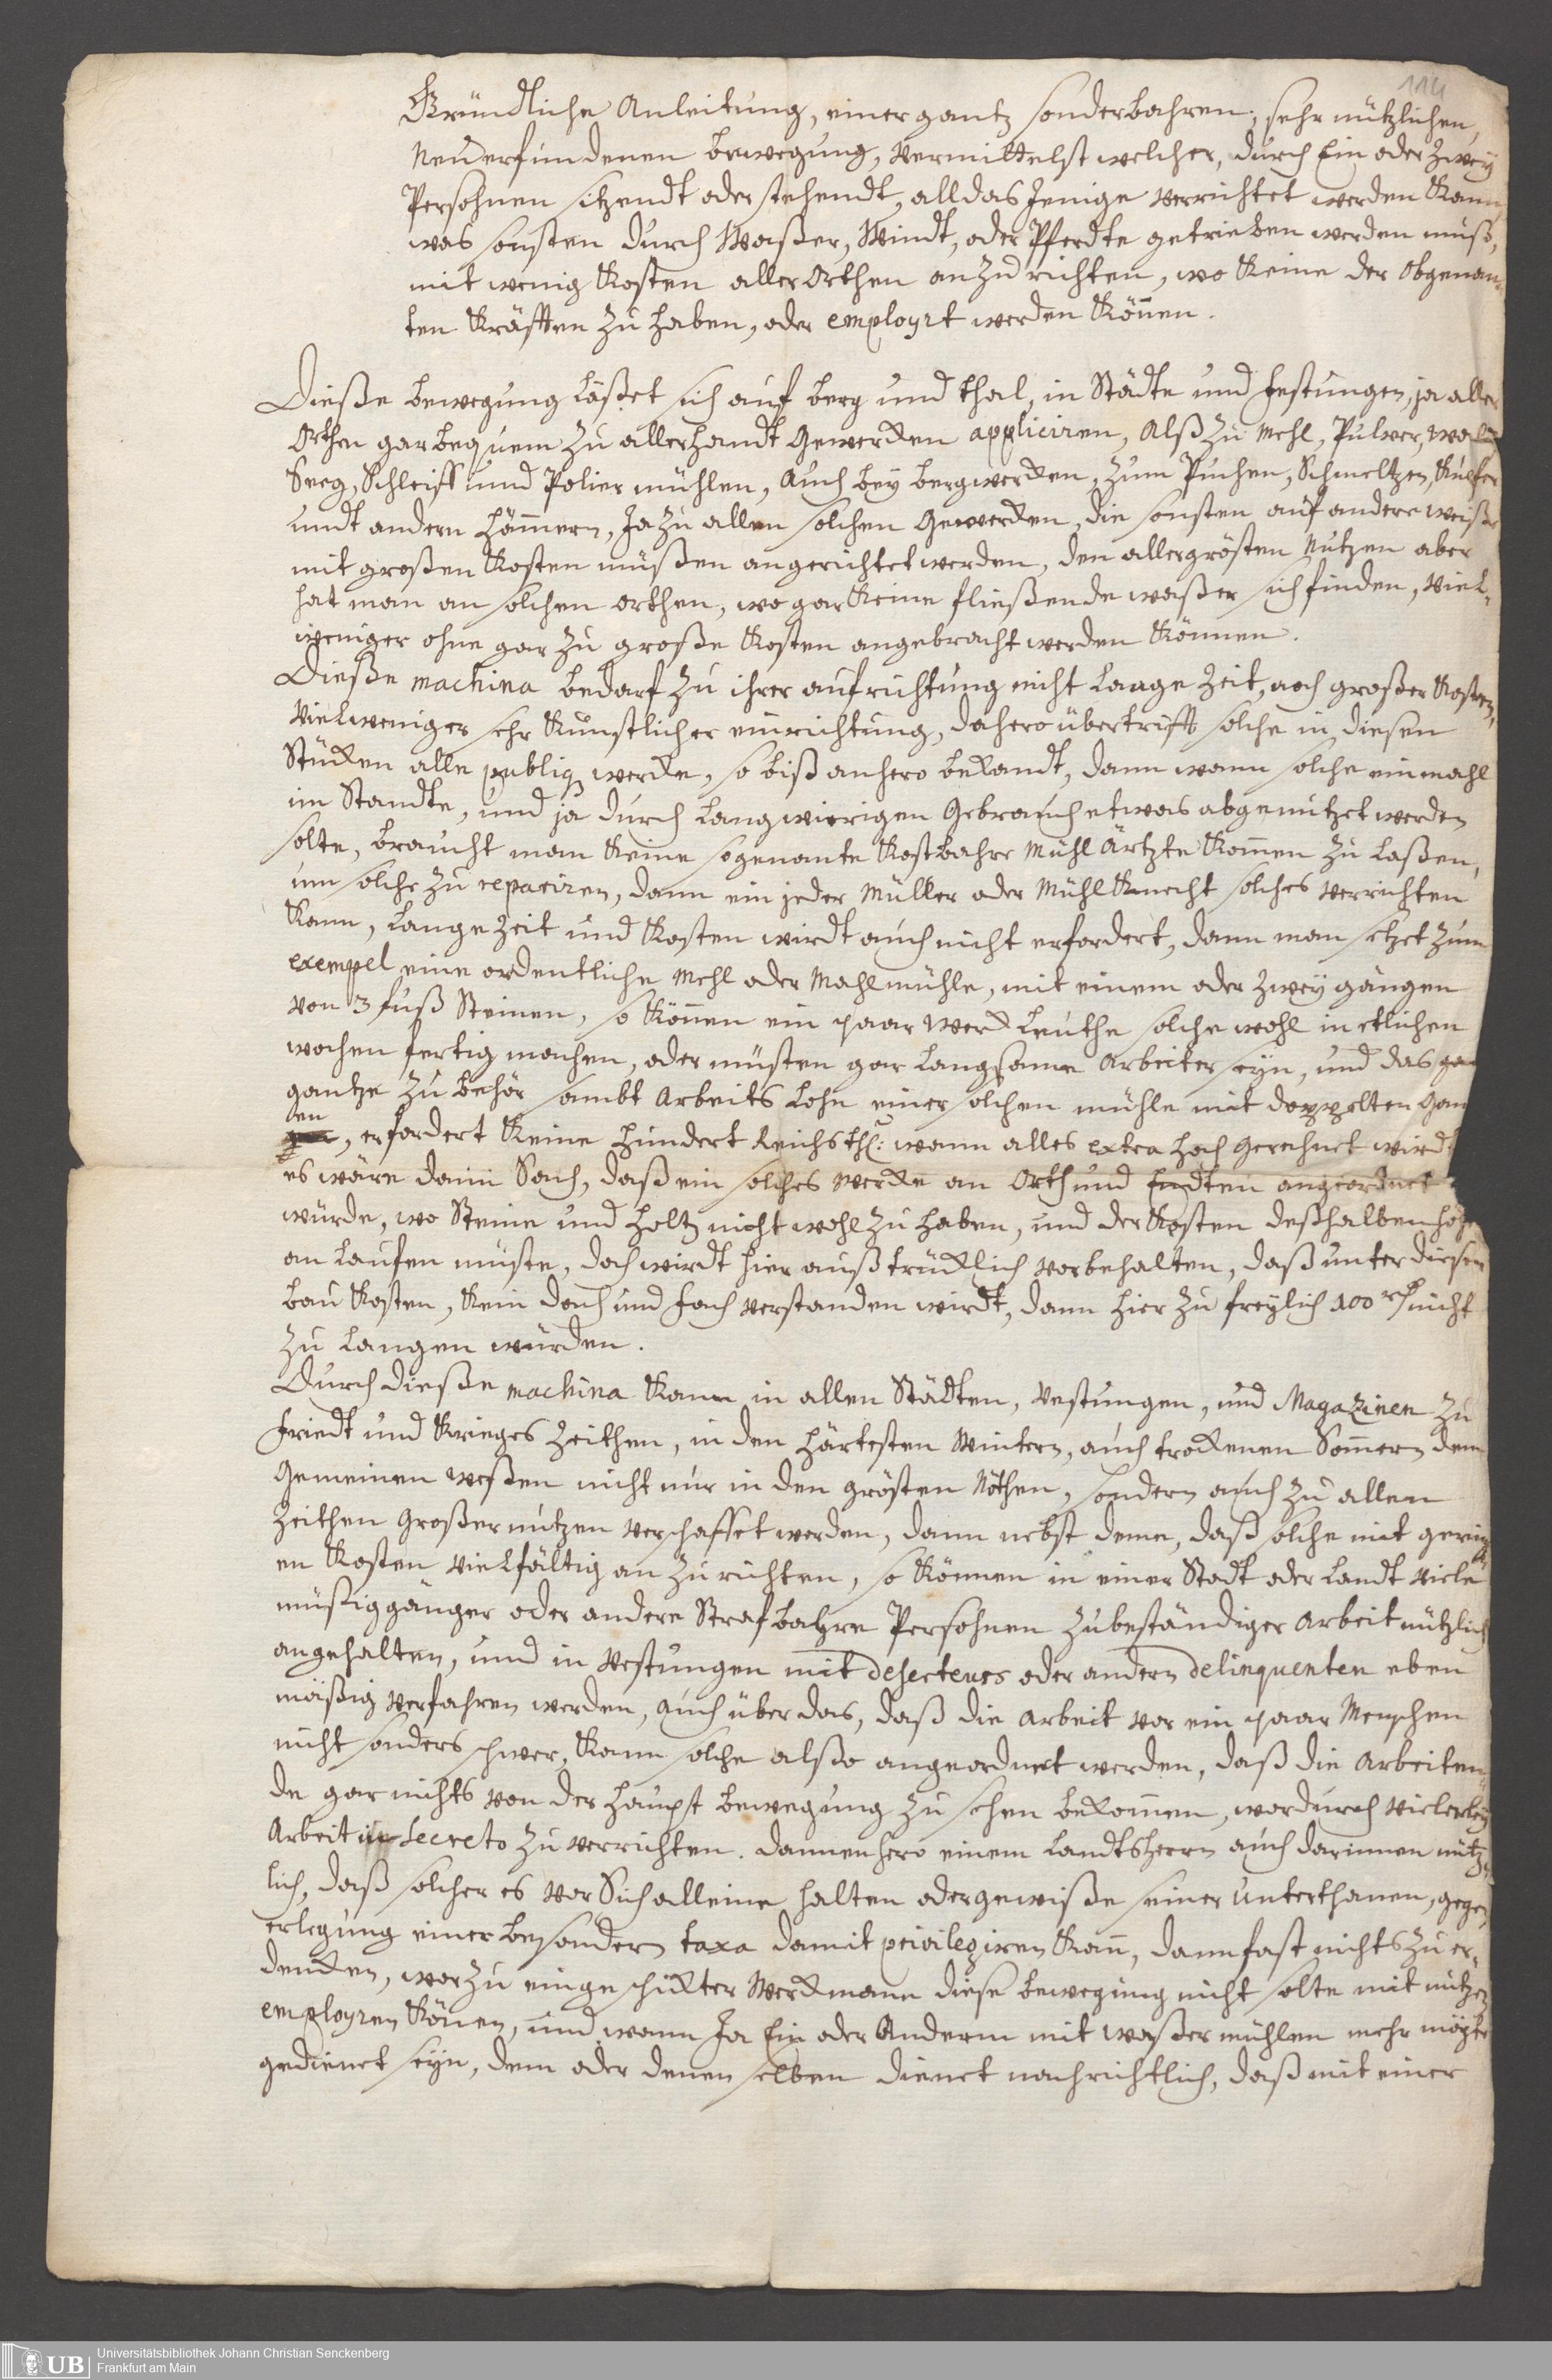 114
Gründliche Anleitung, einer gantz sonderbahren, sehr nützlichen,
Neu erfundenen bewegung, vermittelst welcher, durch Ein oder Zwey
Persohnen sitzendt oder stehendt, all das Jenige verrichtet werden kann,
was sonsten durch Waßer, Windt, oder Pferdte getrieben werden muß,
mit wenig Kosten aller Orthen anzurichten, wo keine der Obgenan-
ten Kräfften zu haben, oder employrt werden können.
Dieße bewegung läßet sich auf berg und thal, in Städte und Festungen, ja aller
Orthen gar bequem zu allerhandt Gewercken appliciren, Alß zu Mehl, Pulver,
Seeg, Schleiff und Polier mühlen, Auch bey bergwercken, zum Puchen, Schmeltzen,
undt andern hämmern, Ja zu allen solchen Gewercken, die sonsten auf andere weiße
mit großen Kosten müßen angerichtet werden, den allergrösten Nutzen aber
hat man an solchen orthen, wo gar keine fließende waßer sich finden, viel-
weniger ohne gar zu große Kosten angebracht werden können.
Dieße machina bedarf zu ihrer aufrichtung nicht lange Zeit, noch großer Kosten,
vielweniger sehr künstlicher einrichtung, dahero übertrifft solche in diesen
Stücken alle publiq wercke, so biß anhero bekandt, dann wann solche einmahl
im Standte, und ja durch langwierigen Gebrauch etwas abgenutzet werden
solte, braucht man keine sogenante Kostbahre Mühl Ärtzte kommen zu laßen,
um solche zu repariren, dann ein jeder Müller oder Mühl Knecht solches verrichten
kann, lange Zeit und Kosten wirdt auch nicht erfordert, dann man setzet zum
exempel eine ordentliche Mehl oder Mahlmühle, mit einem oder zwey gängen
von 3 fuß Steinen, so können ein paar Werck Leuthe solche wohl in etlichen
wochen fertig machen, oder müsten gar langsame Arbeiter seyn, und das
gantze zu behör sambt Arbeits Lohn einer solchen mühle mit doppelten Gan
en, erfordert keine hundert Reichsthl: wann alles extra hoch gerechnet wirdt
es wäre dann Sach, daß ein solches Wercke an Orth und Endten angeordnet
würde, wo Steine und holtz nicht wohl zu haben, und der Kosten deßhalben
an laufen müste, doch wirdt hier außtrücklich vorbehalten, daß unter diesen
bau Kosten, kein dach und fach verstanden wirdt, dann hierzu freylich 100 rth nicht
zu langen würden.
Durch dieße machina kann in allen Städten, Vestungen, und Magazinen zu
Friedt und Krieges Zeithen, in den härtesten Wintern, auch trockenen Sommern dem
Gemeinen weßen nicht nur in den grösten Nöthen, sondern auch zu allen
Zeithen Großer nutzen verschaffet werden, dann nebst deme, daß solche mit gering
en Kosten vielfältig anzurichten, so können in einer Stadt oder Landt viele
müßiggänger oder andere Strafbahre Persohnen zu beständiger Arbeit nützlich
angehalten, und in Vestungen mit deserteurs oder andern delinquenten eben
mäßig verfahren werden, auch über das, daß die Arbeit vor ein paar Menschen
nicht sonders schwer, kann solche alßo angeordnet werden, daß die Arbeiten-
de gar nichts von der haupt bewegung zu sehen bekommen, wordurch vielerley
Arbeit in Secreto zu verrichten. Dannenhero einem Landtsherrn auch darinnen nütz-
lich, daß solcher es vor Sich alleine halten oder gewiße seiner Unterthanen, gegen
erlegung einer besondern taxa damit privilegiren kann, dann fast nichts zu er-
dencken, worzu ein geschickter Werckmann diese bewegung nicht solte mit nutzen
employren können, und wann Ja Ein oder Anderm mit waßer mühlen mehr möchte
gedienet seyn, dem oder denenselben dienet nachrichtlich, daß mit einer
UB Universitätsbibliothek Johann Christian Senckenberg
Frankfurt am Main